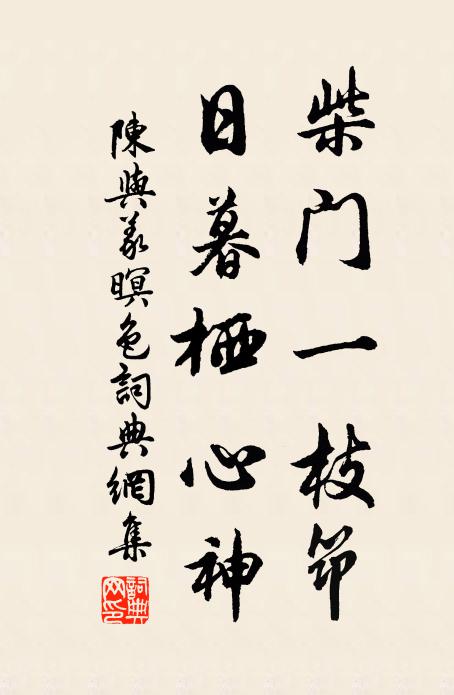 柴门一枝筇
日暮栖心神
陳與義暝色詞典網集
詞典网印